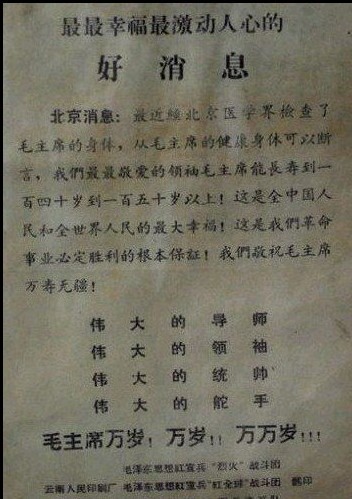 最最幸福最激动人心的
好消息
北京消息：最近經北京医学界檢查了
毛主席的身体，从毛主席的健康身体可以断
言，我們最最敬爱的領袖毛主席能長寿到一
百四十岁到一百五十岁以上！这是全中国人
民和全世界人民的最大幸福！这是我們革命
事业必定胜利的根本保証！我們敬祝毛主席
万寿无疆！
伟大的导师
伟大的領袖
伟大的統帅
伟大的舵手
毛主席万岁！万岁！！万万岁！！！
毛泽东思想紅宣兵“烈火”战斗团
云南人民印刷厂 毛泽东思想紅宣兵“紅全球”战斗团 翻印